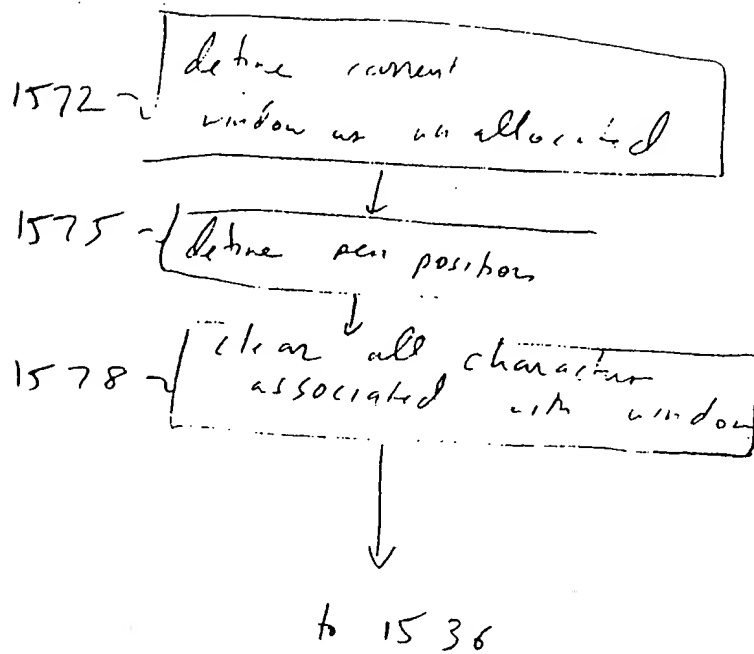 1572
define current
window as unallocated
1575
define pen positions
1578
clear all characters
associated with window
to 1536